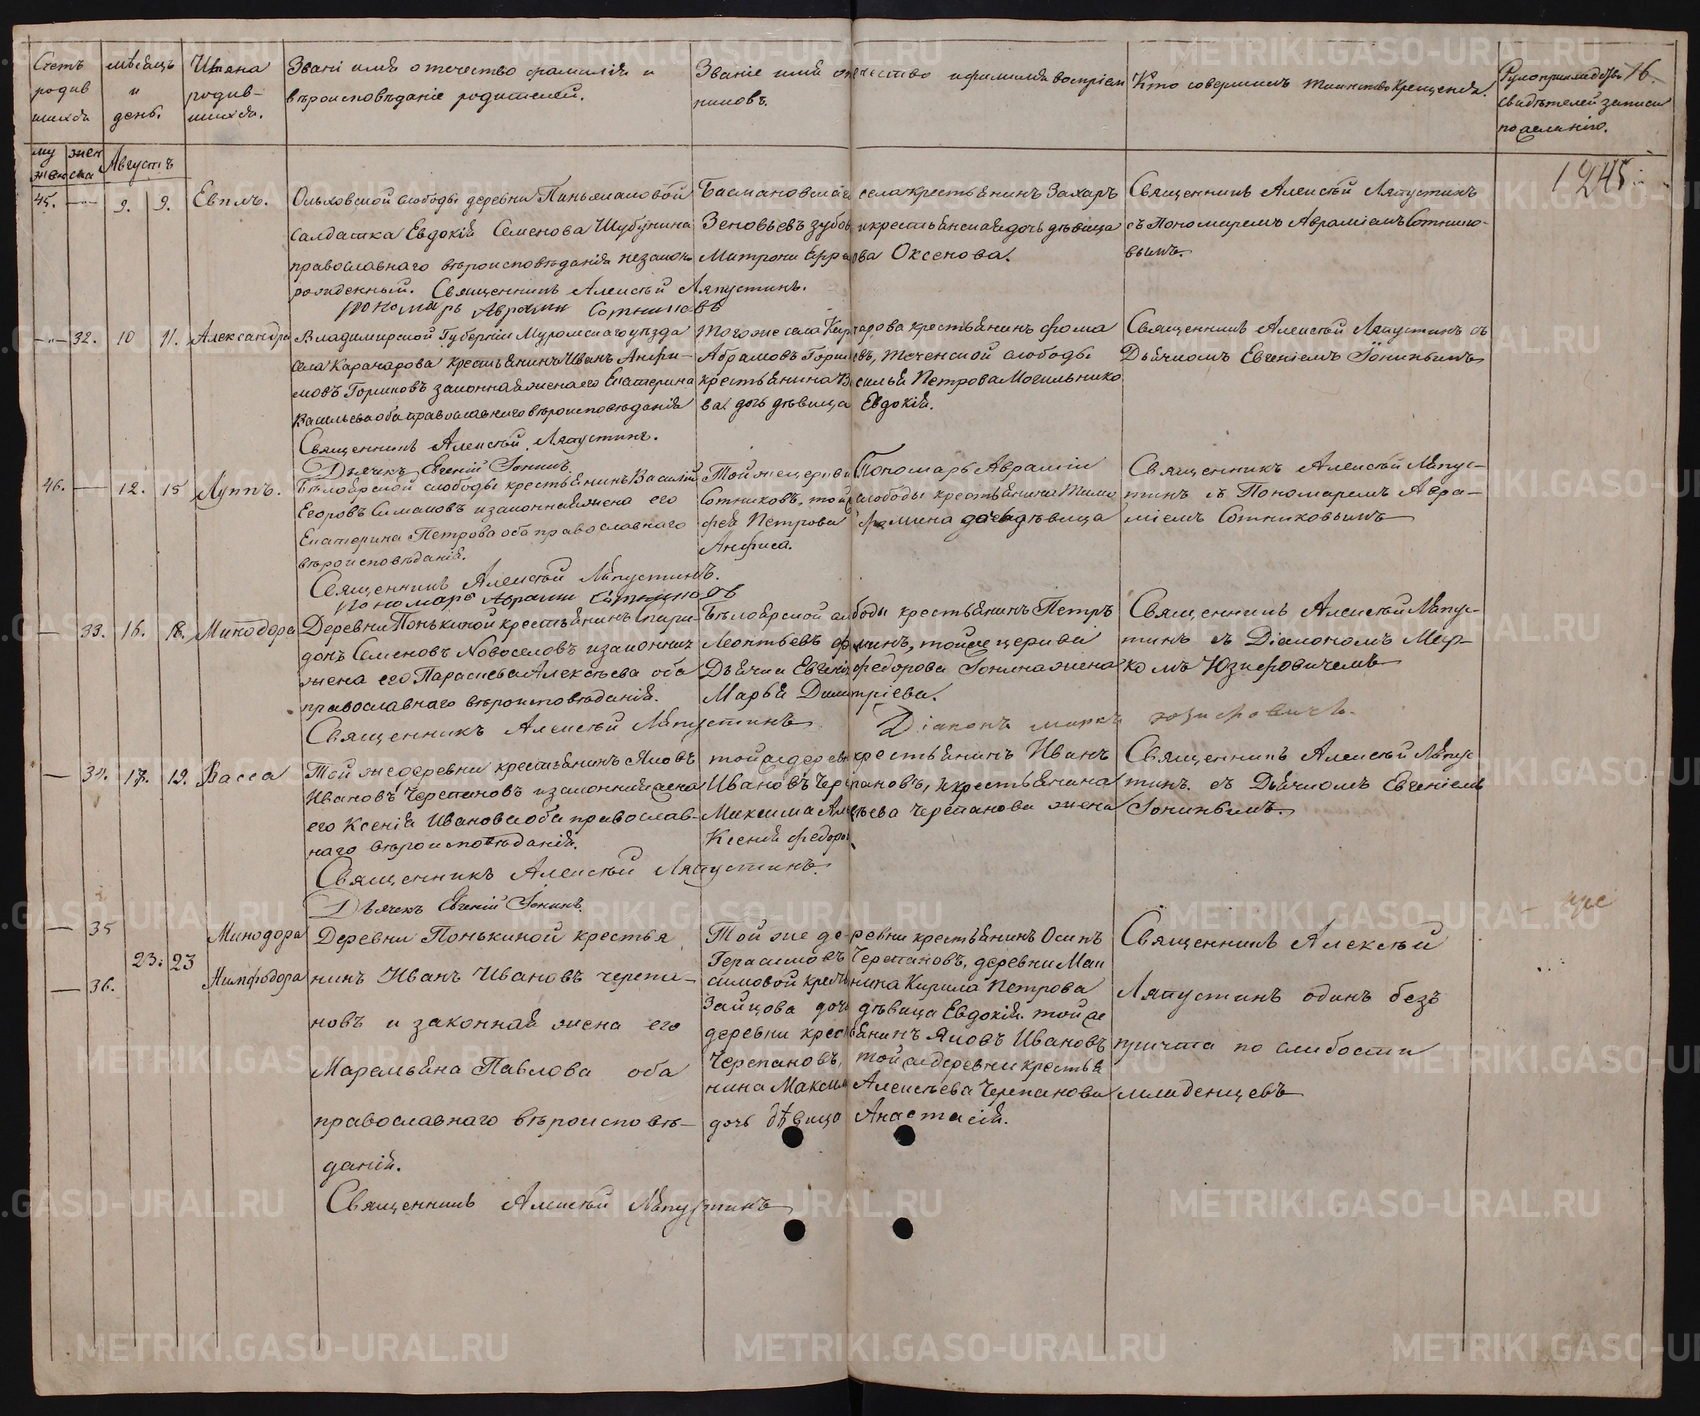 Счетъ родившихся
мѣсяцъ и день.
Имяна родившихся.
Званіе имя отечество фамилія и вѣроисповѣданіе родителей.
Званіе имя отечество и фамилія воспріемниковъ.
Кто совершилъ таинство крещенія.
Рукоприкладство свидѣтелей записи по желанію.
16.
1245
Августъ
45. — 9. 9. Евплъ.
Ольховской слободы деревни
салдатка Евдокія Семенова Шубунина
православнаго вѣроисповѣданія незаконно
рожденный. Священникъ Алексѣй Ляпустинъ.
пономарь Аврамій Сотниковъ
Басмановскаго села крестьянинъ Захаръ
Зеновьевъ Зубовъ и крестьянская дочь дѣвица
Матрона Оксенова.
Священникъ Алексѣй Ляпустинъ
съ Пономаремъ Авраміемъ Сотнико-
вымъ.
— 32. 10 11. Александра
Владимирской Губерніи Муромскаго уѣзда
села Карачарова крестьянинъ Иванъ Анфи-
мовъ Горшковъ законная жена его Екатерина
Васильева оба православнаго вѣроисповѣданія
Священникъ Алексѣй Ляпустинъ.
Дьячекъ Евгеній Іонинъ.
Того же села Карачарова крестьянинъ Фома
Абрамовъ Теченской слободы
крестьянина Василья Петрова Могильнико
ва дочь дѣвица Евдокія.
Священникъ Алексѣй Ляпустинъ съ
Дьячкомъ Евгеніемъ Іонинымъ
46. — 12. 15 Луппъ.
Бѣлоярской слободы крестьянинъ Василій
Егоровъ Симаковъ и законная жена его
Екатерина Петрова оба православнаго
вѣроисповѣданія.
Священникъ Алексѣй Ляпустинъ.
пономарь Аврамій Сотниковъ
Той же церкви Пономарь Аврамій
Сотниковъ, той слободы крестьянина Тимо
фея Петрова Фомина дочь дѣвица
Анфиса.
Священникъ Алексѣй Ляпус-
тинъ съ Пономаремъ Авра-
міемъ Сотниковымъ
— 33. 16. 18. Минодора
Деревни Понькиной крестьянинъ Спири-
донъ Семеновъ Новоселовъ и законная
жена его Параскева Алексѣева оба
православнаго вѣроисповѣданія.
Священникъ Алексѣй Ляпустинъ
Бѣлоярской слободы крестьянинъ Петръ
Леонтьевъ Фоминъ, той же церкви
Дьячка Евгенія Федорова Іонина жена
Марья Димитріева.
Діаконъ Маркъ Юзифовичъ.
Священникъ Алексѣй Ляпус-
тинъ съ Діакономъ Мар-
комъ Юзифовичемъ
— 34. 17. 19. Васса
Той же деревни крестьянинъ Яковъ
Ивановъ Черепановъ и законная жена
его Ксенія Иванова оба православ-
наго вѣроисповѣданія.
Священникъ Алексѣй Ляпустинъ.
Дьячекъ Евгеній Іонинъ.
той же деревни крестьянинъ Иванъ
Ивановъ Черепановъ, и крестьянина
Максима Алексѣева Черепанова жена
Ксенія Федорова
Священникъ Алексѣй Ляпус
тинъ съ Дьячкомъ Евгеніемъ
Іонинымъ.
— 35 Минодора
23. 23
— 36. Нимфодора
Деревни Понькиной крестья
нинъ Иванъ Ивановъ Черепа-
новъ и законная жена его
Маремьяна Павлова оба
православнаго вѣроисповѣ-
данія.
Священникъ Алексѣй Ляпустинъ
Той же деревни крестьянинъ Осипъ
Герасимовъ Черепановъ, деревни Мак
симовой крестьянина Кирила Петрова
Зайцова дочь дѣвица Евдокія. той же
деревни крестьянинъ Яковъ Ивановъ
Черепановъ, той же деревни крестья
нина Максима Алексѣева Черепанова
дочь дѣвица Анастасія.
Священникъ Алексѣй
Ляпустинъ одинъ безъ
причта по слабости
младенцевъ
METRIKI.GASO-URAL.RU